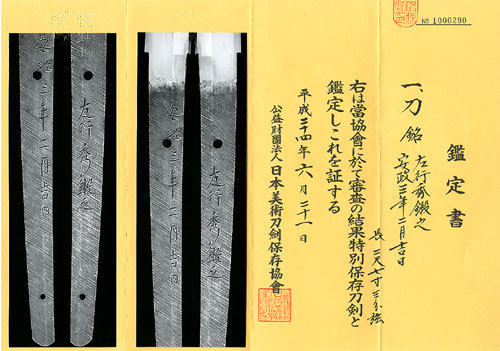 № 1000290
鑑定書
一、刀 銘 左行秀鍛之
安政三年二月吉日
長二尺七寸三分強
右は當協會に於て審査の結果特別保存刀剣と
鑑定しこれを証する
平成二十四年六月二十一日
公益財團法人日本美術刀劍保存協會
左行秀鍛之
安政三年二月吉日
左行秀鍛之
安政三年二月吉日